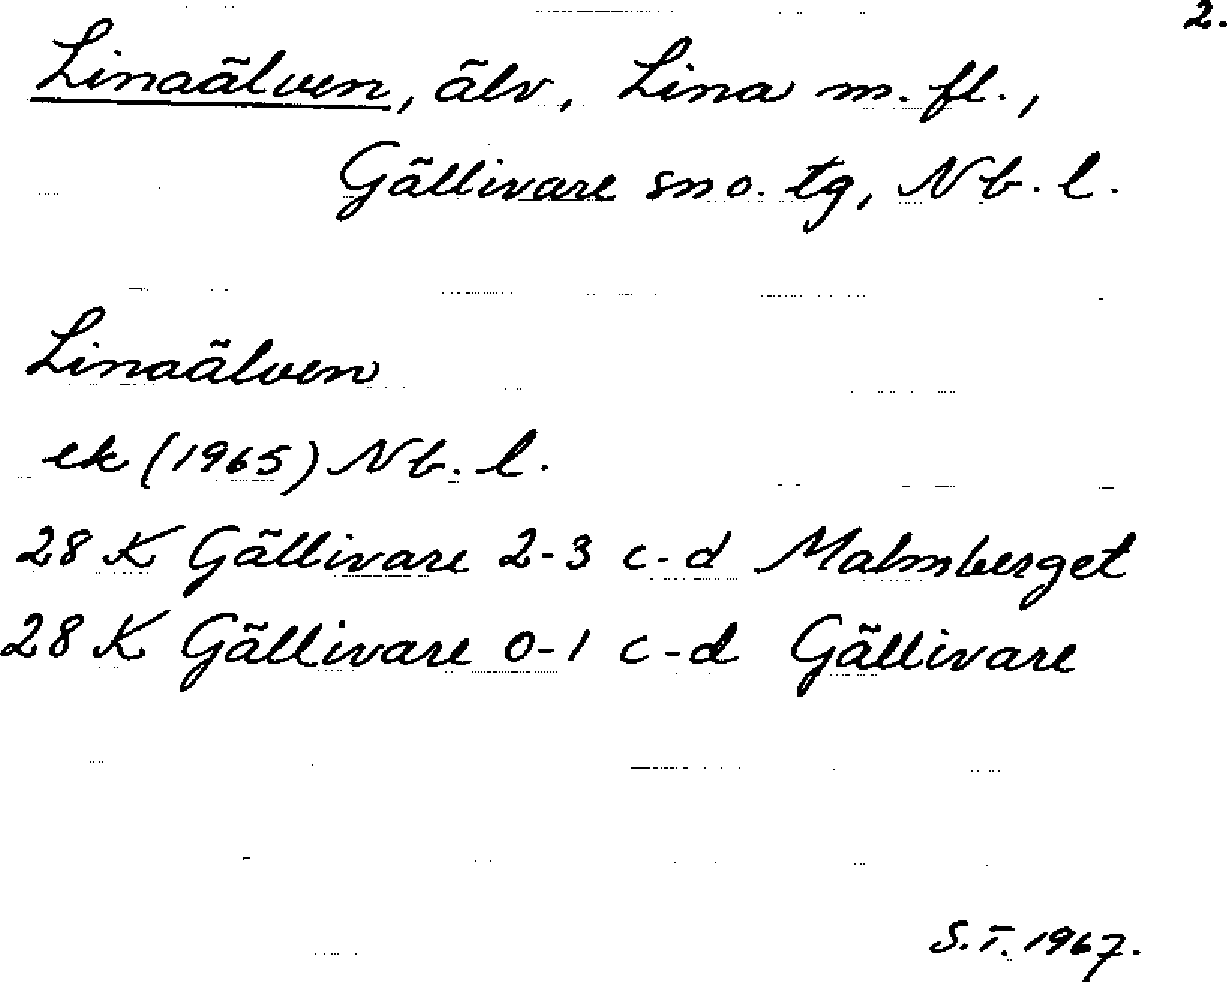 2.
Linaälven, älv, Lina m. fl.,
Gällivare sn o. tg, Nb. l.
Linaälven
ek (1965) Nb. l.
28 K Gällivare 2-3 c-d Malmberget
28 K Gällivare 0-1 c-d Gällivare
S.T. 1967.